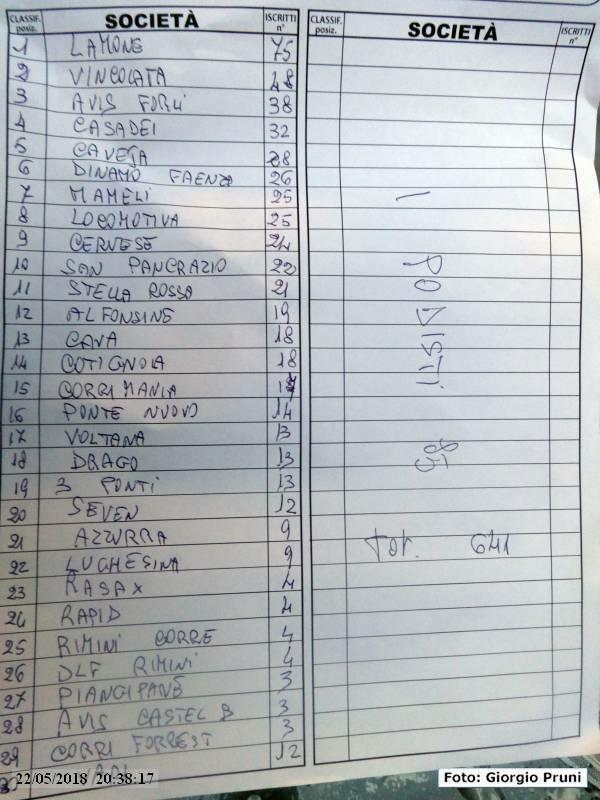 CLASSIF. posiz. SOCIETÀ ISCRITTI n°
1 LAMONE 75
2 VINCOLATA 48
3 AVIS FORLÌ 38
4 CASADEI 32
5 CAVEJA 28
6 DINAMO FAENZA 26
7 MAMELI 25
8 LOCOMOTIVA 25
9 CERVESE 24
10 SAN PANCRAZIO 22
11 STELLA ROSSA 21
12 ALFONSINE 19
13 CAVA 18
14 COTIGNOLA 18
15 CORRIMANIA 17
16 PONTE NUOVO 14
17 VOLTANA 13
18 DRAGO 13
19 3 PONTI 13
20 SEVEN 12
21 AZZURRA 9
22 LUGHESINA 9
23 RASAX 4
24 RAPID 4
25 RIMINI CORRE 4
26 DLF RIMINI 4
27 PIANGIPANE 3
28 AVIS CASTEL B 3
29 CORRI FORREST 3
12
CLASSIF. posiz. SOCIETÀ ISCRITTI n°
TOT. 641
22/05/2018 20:38:17
Foto: Giorgio Pruni